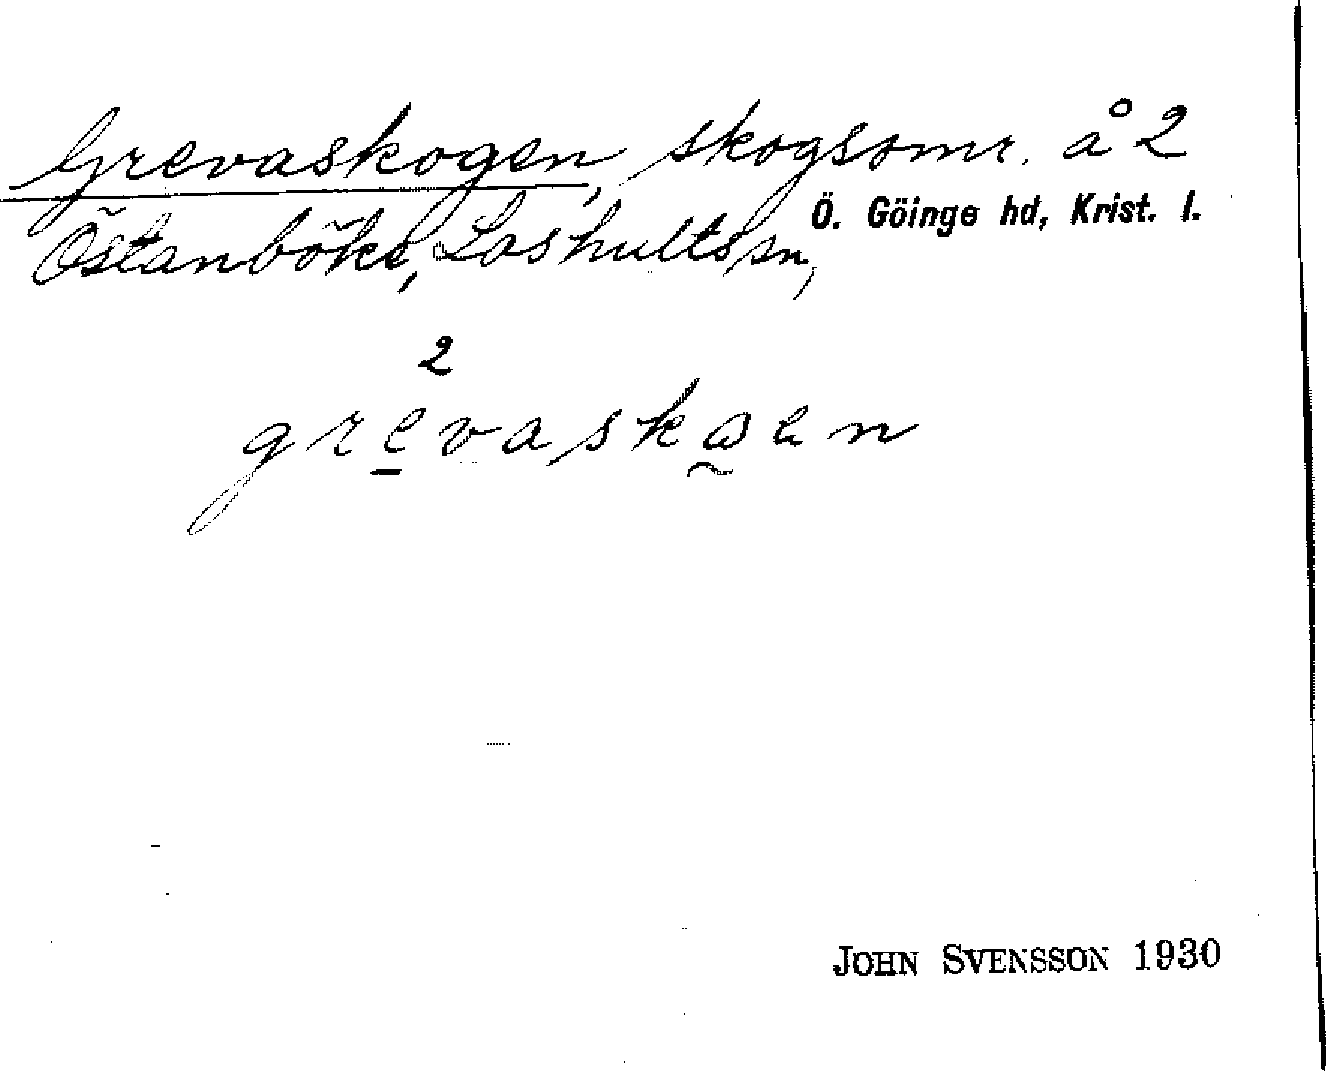 Grevaskogen, skogsomr. å 2
Ö. Göinge hd, Krist. l.
Östanböke, Loshults sn,
2
grevaskoen
JOHN SVENSSON 1930